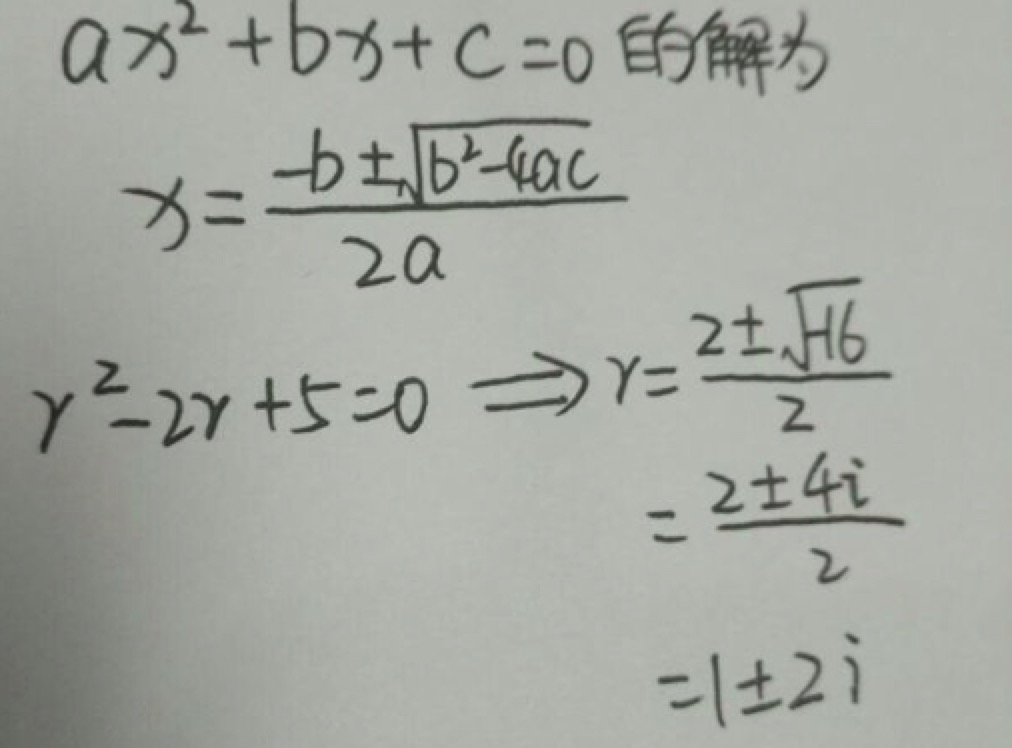 ax² + bx + c = 0 的解为
x = (-b ± √(b²-4ac)) / 2a
r² - 2r + 5 = 0 ⟹ r = (2 ± √-16) / 2
= (2 ± 4i) / 2
= 1 ± 2i